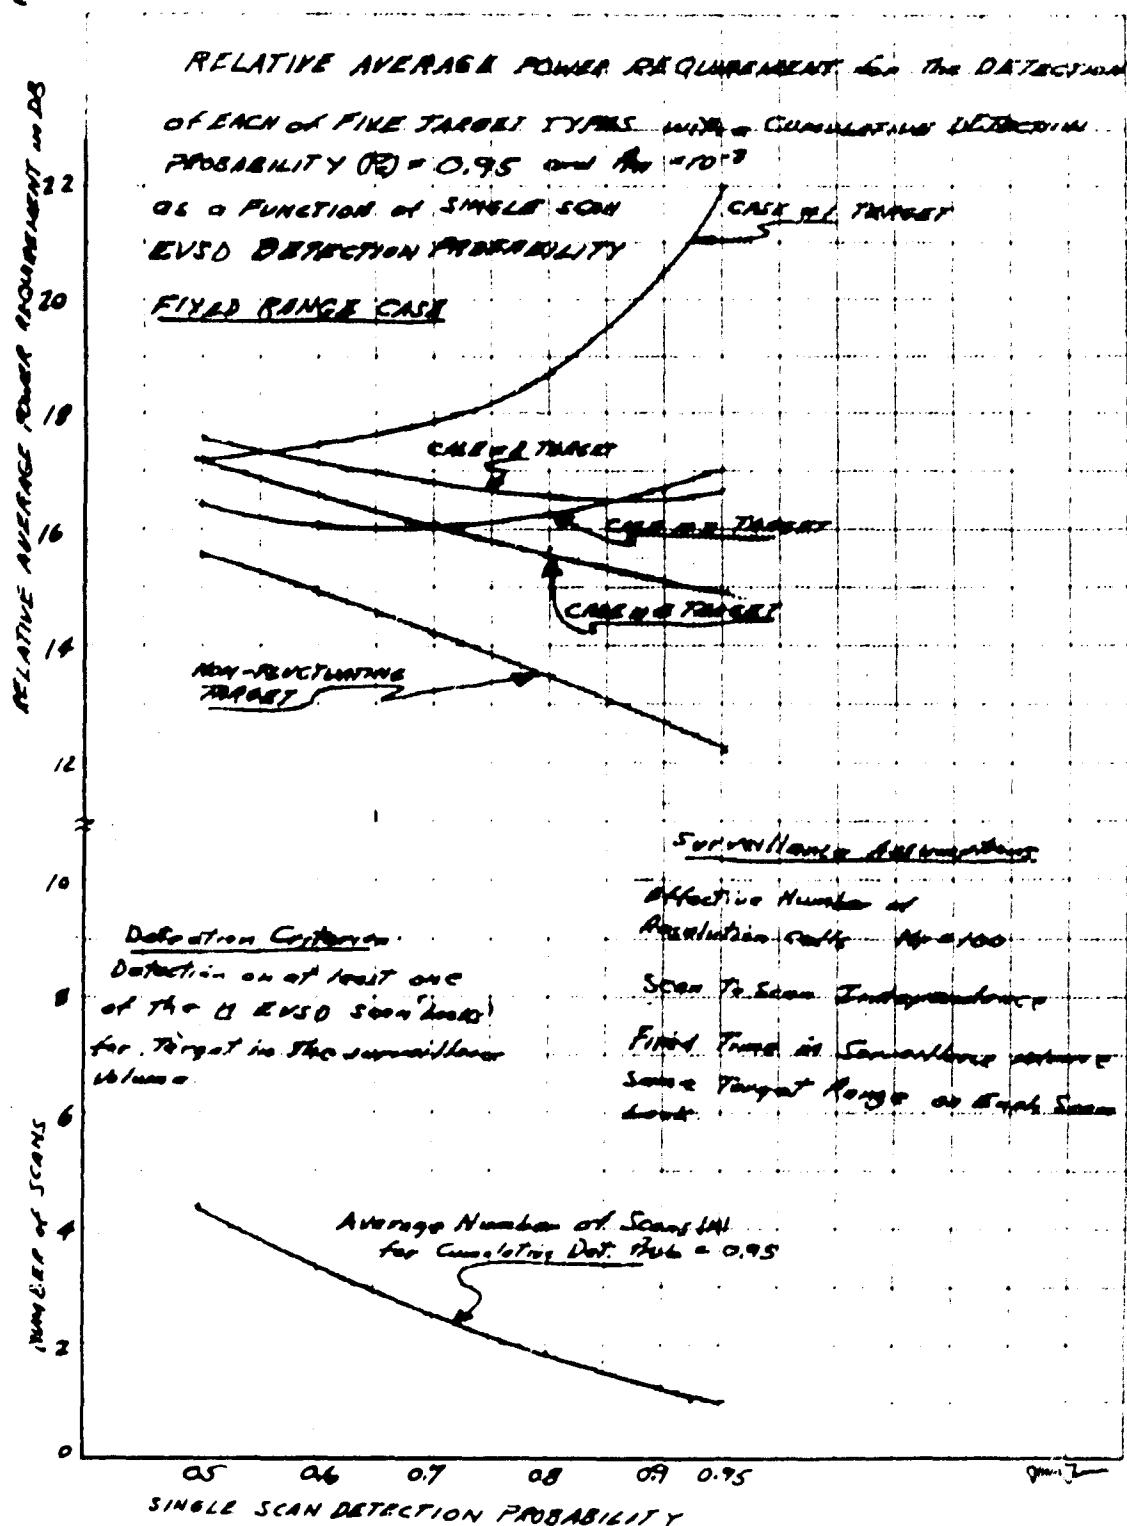 RELATIVE AVERAGE POWER REQUIREMENT for the DETECTION
of EACH of FIVE TARGET TYPES with a CUMULATIVE DETECTION
PROBABILITY (Pc) = 0.95 and
as a FUNCTION of SINGLE SCAN
EVSD DETECTION PROBABILITY
FIXED RANGE CASE
RELATIVE AVERAGE POWER REQUIREMENT in DB
22
20
18
16
14
12
CASE #1 TARGET
CASE # TARGET
CASE # TARGET
CASE # TARGET
NON-FLUCTUATING
TARGET
Surveillance Assumptions
Effective Number of
Resolution Cells = 100
Scan To Scan Independence
Fixed Time in Surveillance
Same Target Range on Each Scan
Look
Detection Criterion
Detection on at least one
of the M EVSD scan 'looks'
for Target in the surveillance
volume
10
8
6
4
2
0
NUMBER of SCANS
Average Number of Scans (M)
for Cumulative Det. Prob = 0.95
0.5 0.6 0.7 0.8 0.9 0.95
SINGLE SCAN DETECTION PROBABILITY